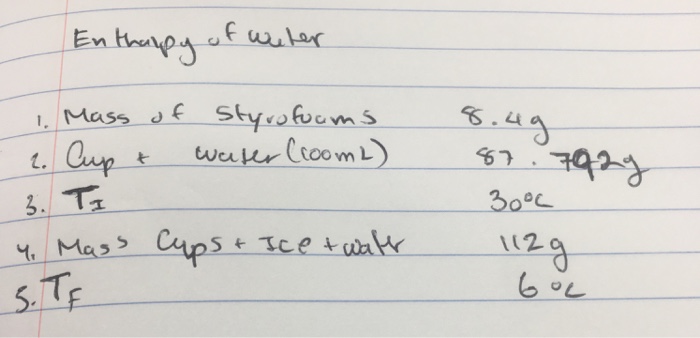 Enthalpy of water
1. Mass of Styrofoams 8.4g
2. Cup + water (100mL) 87.792g
3. TI 30°C
4. Mass Cups + Ice + watr 112g
5. TF 6°C